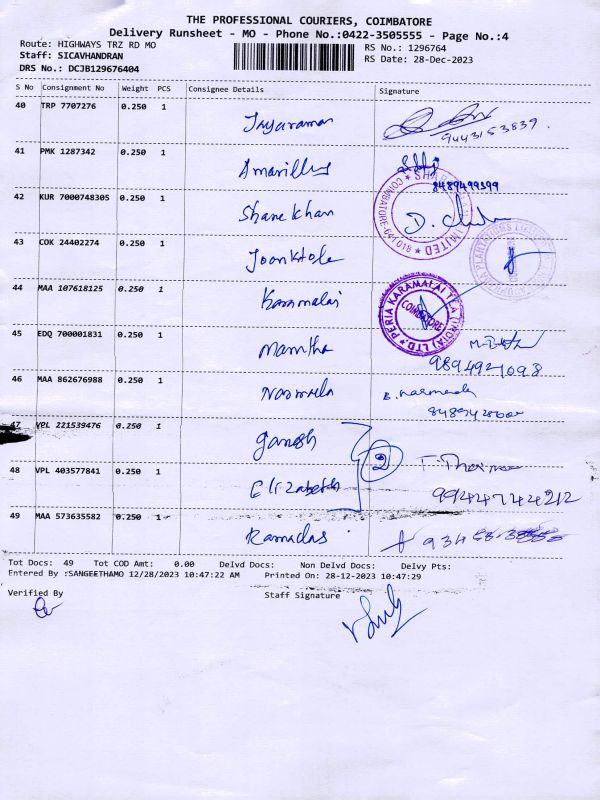 THE PROFESSIONAL COURIERS, COIMBATORE
Delivery Runsheet - MO - Phone No.:0422-3505555 - Page No.:4
Route: HIGHWAYS TRZ RD MO
RS No.: 1296764
Staff: SICAVHANDRAN
RS Date: 28-Dec-2023
DRS No.: DCJB129676404
S No Consignment No Weight PCS Consignee Details Signature
40 TRP 7707276 0.250 1 Jayaraman
9443153839.
41 PMK 1287342 0.250 1 Amarillus
8489499399
42 KUR 7000748305 0.250 1 Shane Khan
COIMBATORE-641018 ★ SHAR LIMITED
43 COK 24402274 0.250 1
PLANTATIONS
44 MAA 107618125 0.250 1 Karamalai
PERIA KARAMALAI TEA (INDIA) LTD. ★ COIMBATORE
45 EDQ 700001831 0.250 1 Mamtha
9894921098
46 MAA 862676988 0.250 1 Narmada B. Narmada
47 VPL 221539476 0.250 1 Ganesh
2
48 VPL 403577841 0.250 1 Elizabeth
99444744212
49 MAA 573635582 0.250 1 Ramadas
Tot Docs: 49 Tot COD Amt: 0.00 Delvd Docs: Non Delvd Docs: Delvy Pts:
Entered By :SANGEETHAMO 12/28/2023 10:47:22 AM Printed On: 28-12-2023 10:47:29
Verified By Staff Signature